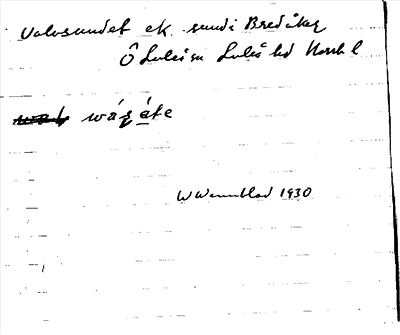 Valvsundet ek sundi Bredåker
Ö Luleå sn Luleå tid Norrb l
wáʒáte
W Wennblad 1930